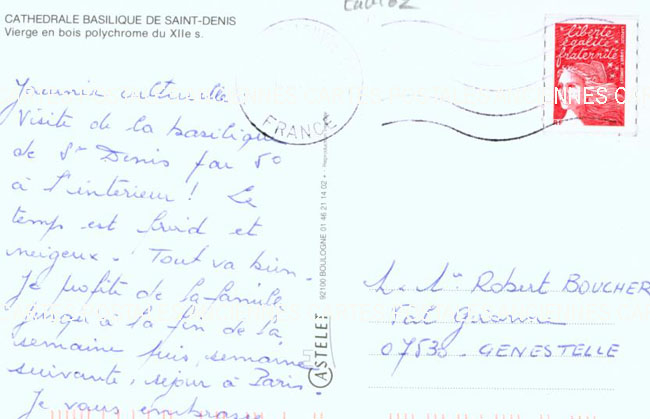 CATHEDRALE BASILIQUE DE SAINT-DENIS
Vierge en bois polychrome du XIIe s.
Journée culturelle
Visite de la basilique
de St Denis par 5°
à l'intérieur ! Le
temps est froid et
neigeux. Tout va bien.
Je profite de la famille
jusqu'à la fin de la
semaine puis, semaine
suivante, séjour à Paris.
Je vous embrasse
FRANCE
liberté
égalité
fraternité
92100 BOULOGNE 01 46 21 14 02
ASTELET
M. Me Robert BOUCHER
07530 - GENESTELLE